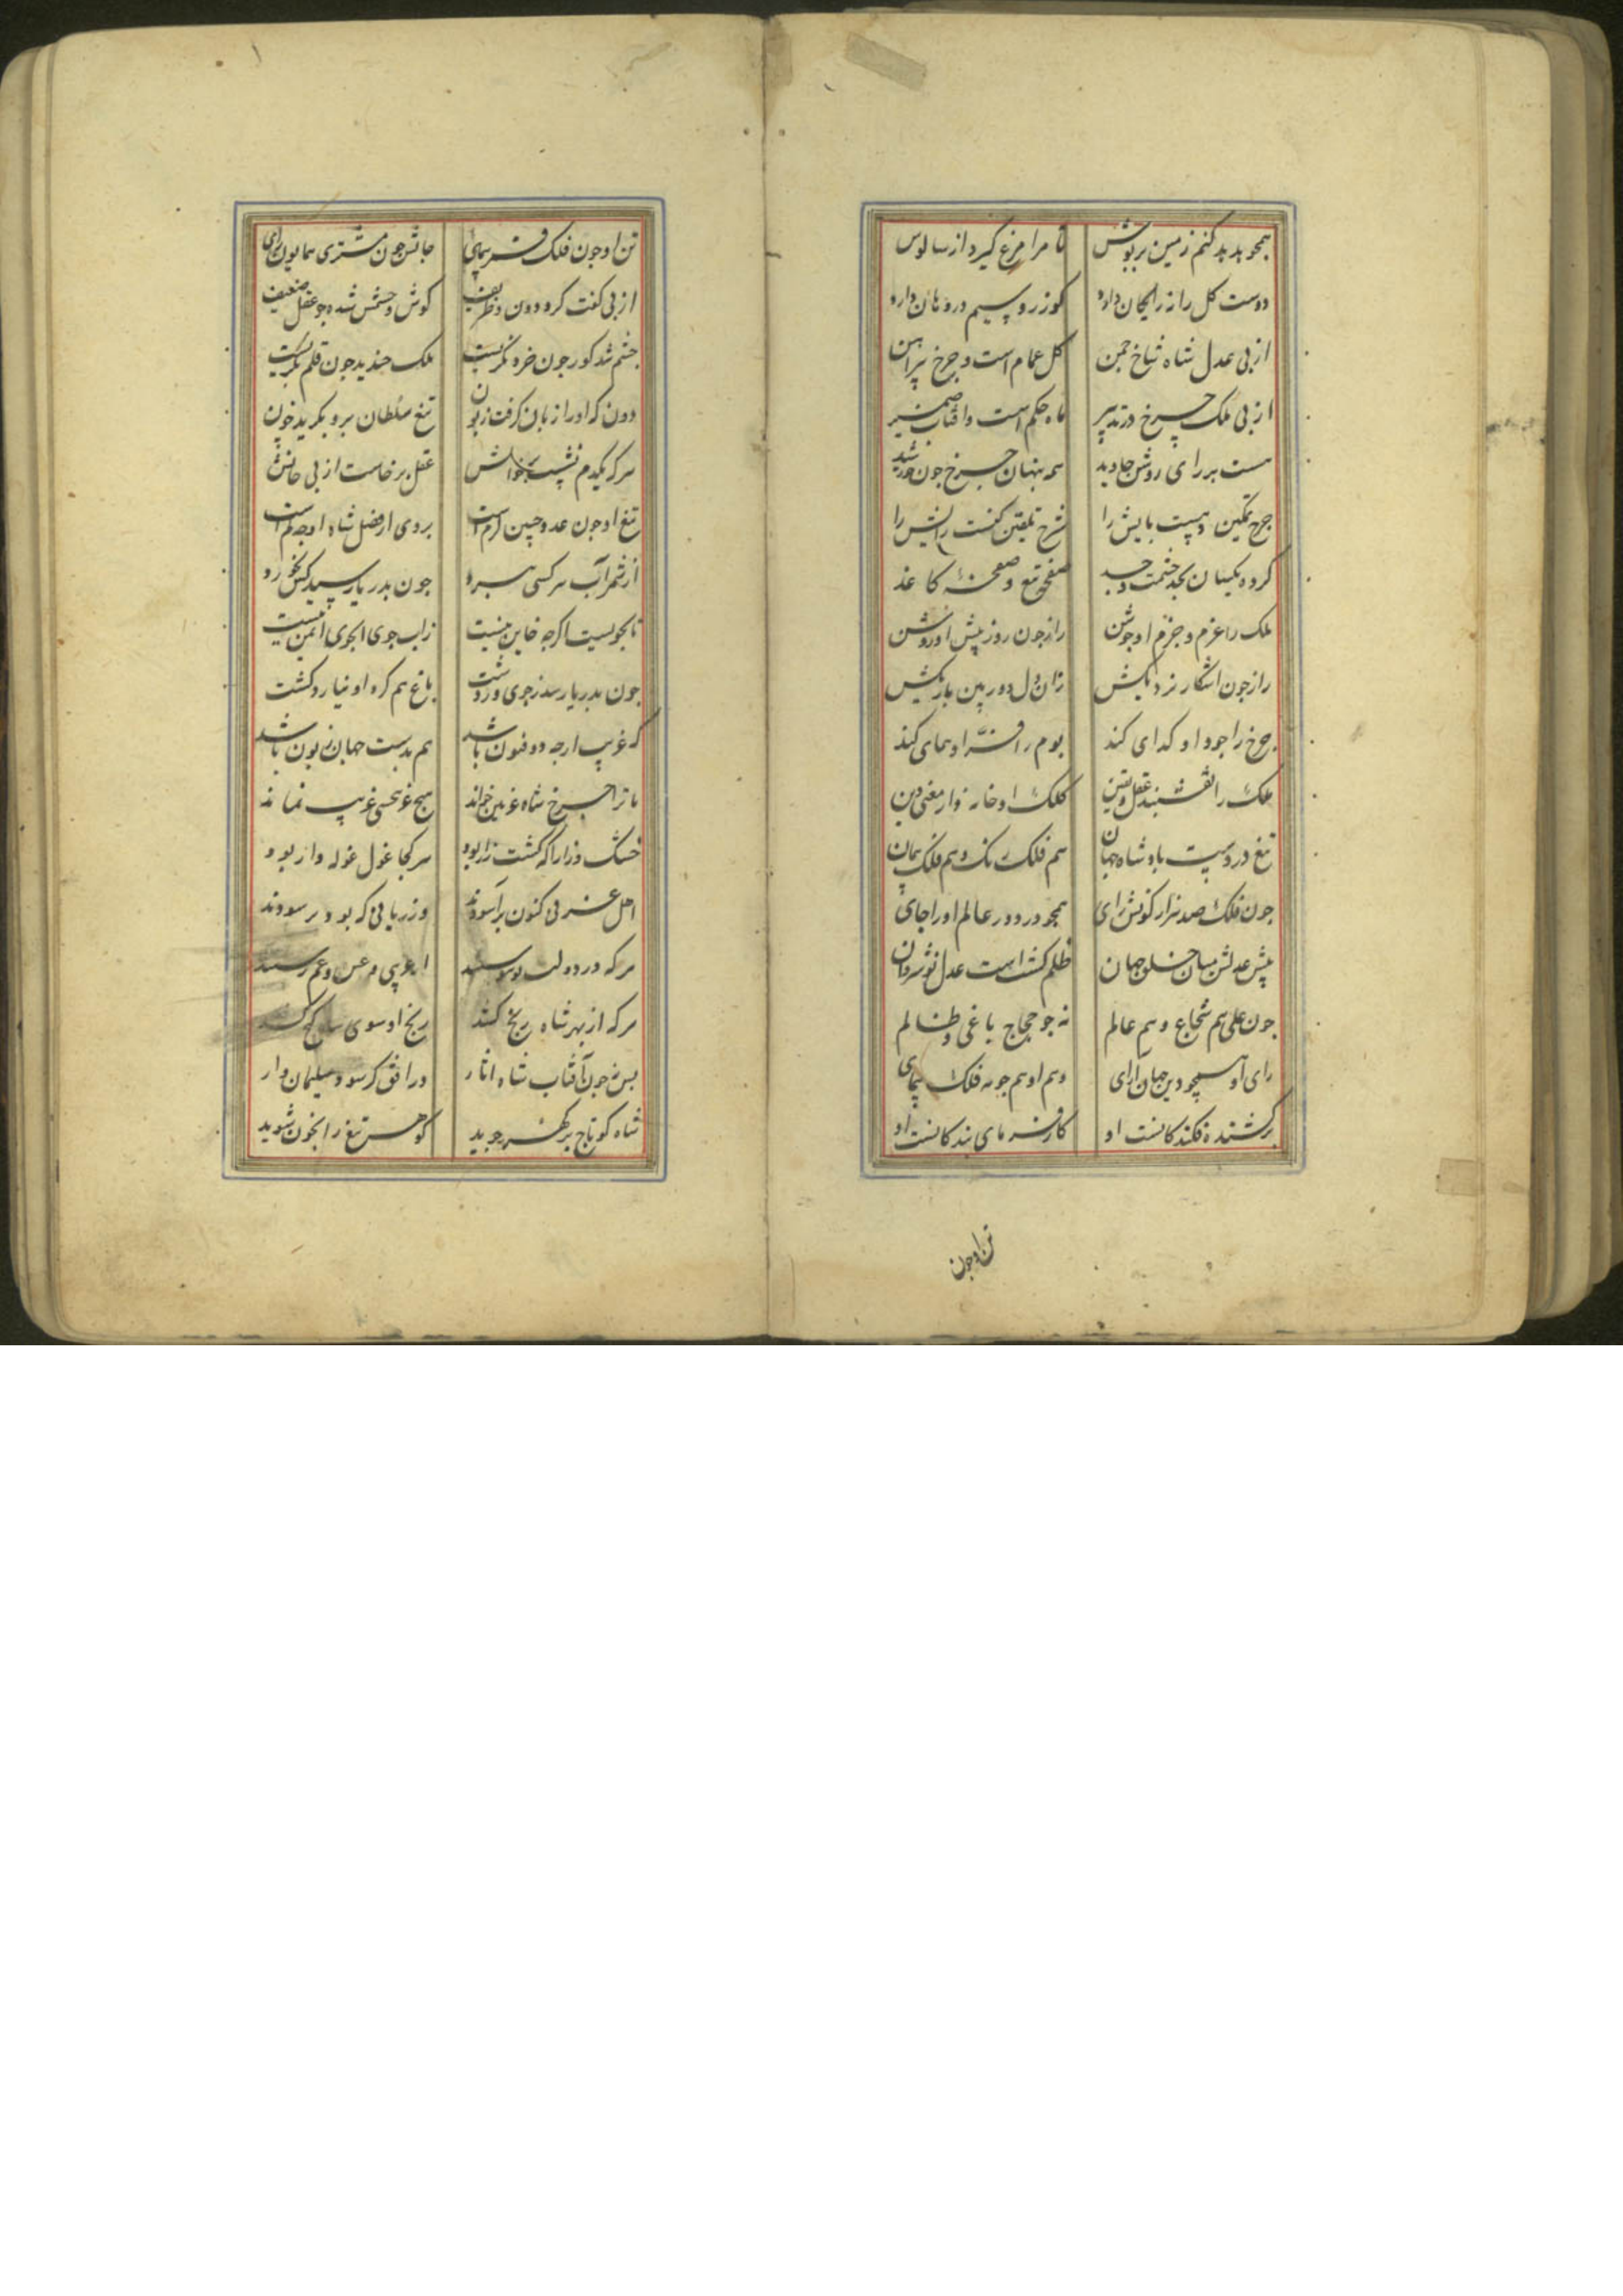 همجو بد بد کنم زمین بربوش تا مرا مرغ کیرد از سالوس
دوست کل را نه رایکان دارد کوزر و سیم در دهان دارد
از بی عدل شاه شاخ جمن کل عمامست و جرخ پیراهن
از بی ملک جرخ در تدبیر ماه حکم است وافتاب ضمیر
هست بر رای روشن جاوید همه بنهان جرخ جون خورشید
جرخ تمکین بایش را شرح تلقین کنت رایش را
کرده یکسان بجد صفحه تیغ و صفحه کاغذ
ملک را عزم و حزم او جوشن راز جون روز بیش او روشن
راز جون اشکار نزدیکش زان دل دوربین باریکش
جرخ را جود او کدای کند بوم را فر او همای کند
ملک را نقشبند عقل و یقین کلک او خازن معنی دین
تیغ در دست بادشاه جهان هم فلک رنک و هم فلک بیمان
جون فلک صد هزار کونش رای همجو در دور عالم اورا جای
بیش عدلش میان خلق جهان ظلم کشتست عدل نوشروان
جون علی هم شجاع و هم عالم نه جو حجاج یاغی و ظالم
رای او همجو دین جهان آرای وهم او هم جو مه فلک بیمای
سرکشنده فکندکانست او کارفرمای بندکانست او
تن او جون
تن او جون فلک بیمای جانش جون مشتری همایون رای
از بی کفت کرد دون و ظریف کوش و جشمش شده جو عقل ضعیف
جشم شد کور جون خرد نکریست ملک خندید جون قلم بکریست
دون که او را زبان کرفت زبون تیغ سلطان برو بکرید خون
هرکه یکدم نشست بر خوانش عقل برخاست از بی جانش
تیغ او جون عدو جنین لرم است بروی از فضل شاه او جه کم است
از شمر آب هر کسی ببرد جون بدریا رسید کس نخورد
تا بجویست اکرجه خاین نیست زاب جوی ابجوی ایمن نیست
جون بدریا رسد ز جوی و ز دشت باغ هم کرد او نیارد کشت
که غریب ارجه ذوفنون باشد هم بدست جهان زبون باشد
تا ترا جرخ شاه غزنین خواند هیج غرجسی غریب نماند
خسک و زارا که کشت زار بود هرکجا غول غوله وار بود
اهل غزنی کنون برآسودند وز ربایی که بود بر سودند
هرکه در دولت تو
هرکه از بهر شاه رنج کشد رنج او سوی کنج کشد
بس نه جون آفتاب شاه اثار در افق کرسود سلیمان وار
شاه کو تاج بر کهر جوید کوهر تیغ را بخون شوید